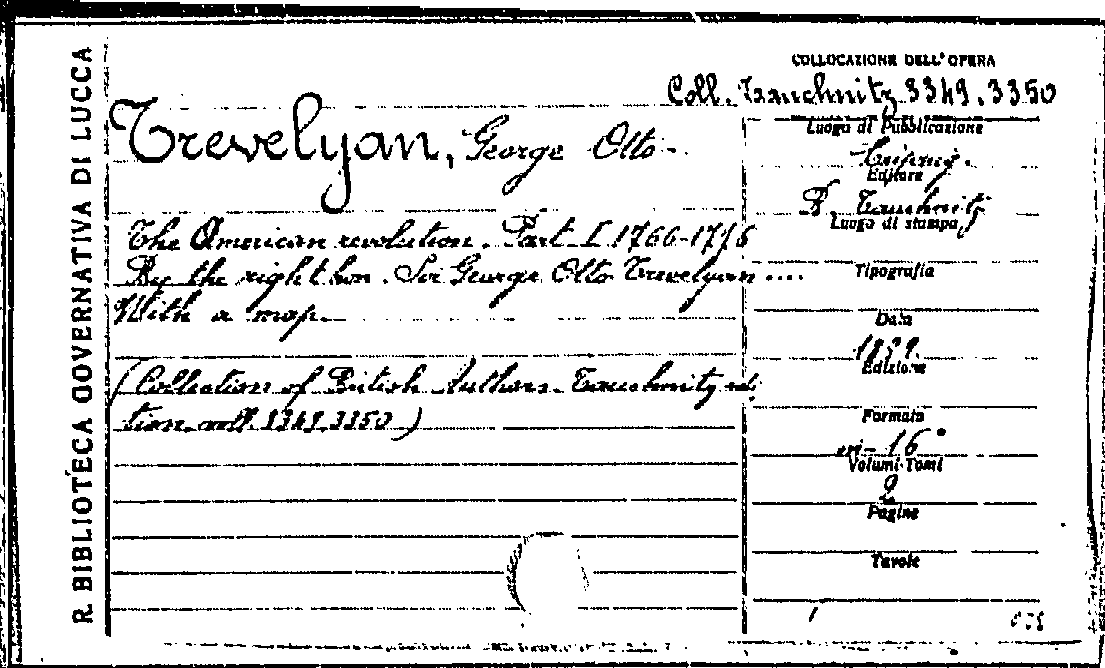 R. BIBLIOTECA GOVERNATIVA DI LUCCA
COLLOCAZIONE DELL'OPERA
Coll. Tauchnitz 3349.3350
Trevelyan, George Otto -
The American revolution. Part I. 1766-1776
By the right hon. Sir George Otto Trevelyan ....
With a map.
(Collection of British Authors. Tauchnitz edi
tion. voll. 3349.3350)
Luogo di Pubblicazione
Leipzig.
Editore
B. Tauchnitz
Luogo di stampa
Tipografia
Data
1899.
Edizione
Formato
in-16°
Volumi-Tomi
2
Pagine
Tavole